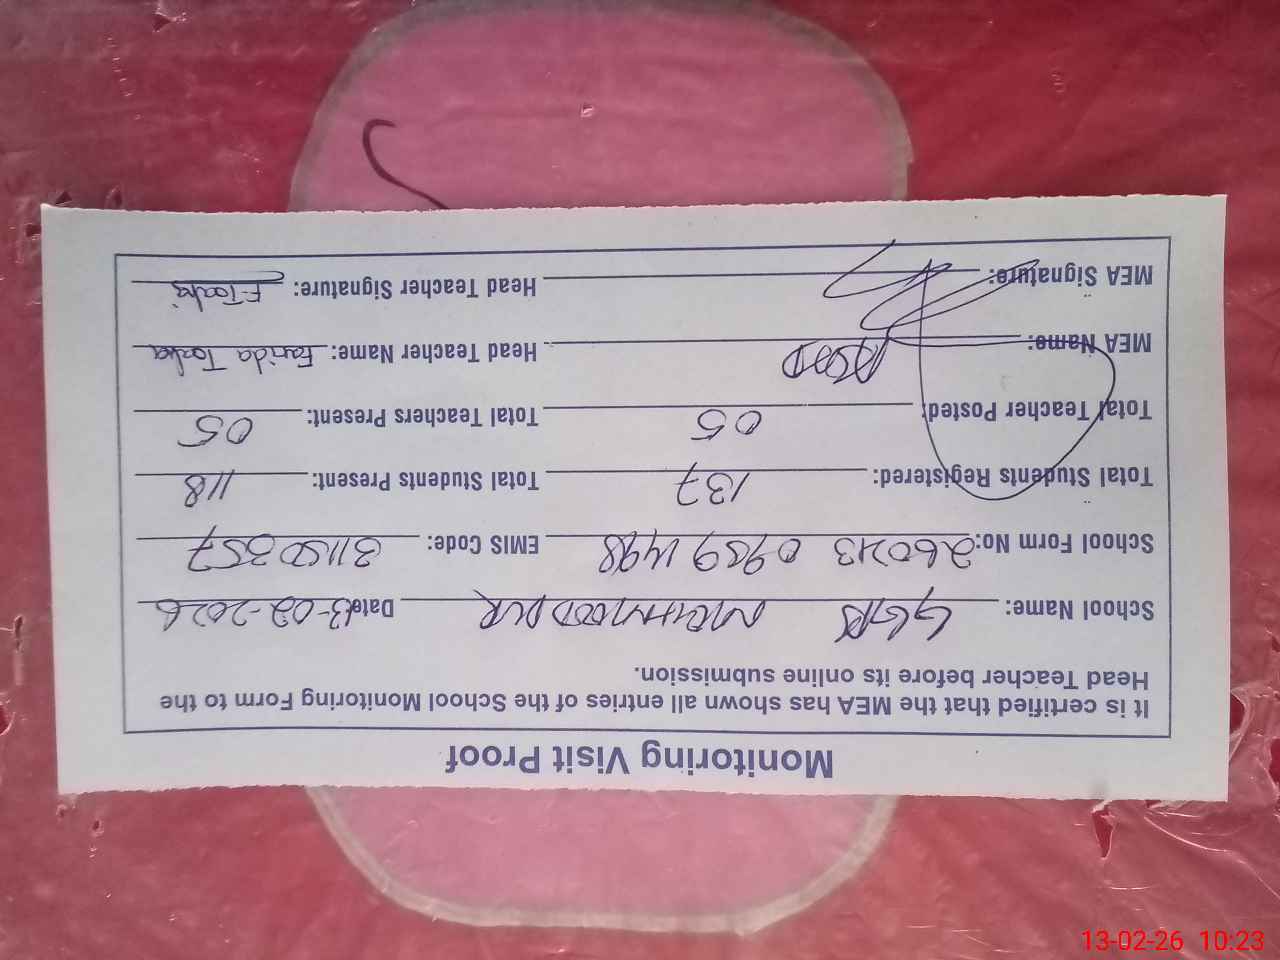 Monitoring Visit Proof
It is certified that the MEA has shown all entries of the School Monitoring Form to the
Head Teacher before its online submission.
School Name: GGPS MEHMOOD PUR Date: 13-02-2026
School Form No: 260213 0959 1498 EMIS Code: 31150357
Total Students Registered: 137 Total Students Present: 118
Total Teacher Posted: 05 Total Teachers Present: 05
MEA Name: Head Teacher Name: Farida
MEA Signature: Head Teacher Signature:
13-02-26 10:23